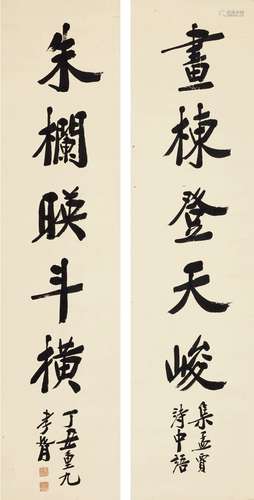 畫棟登天峻
集孟賓
詩中語
朱欄暎斗橫
丁丑重九
孝胥